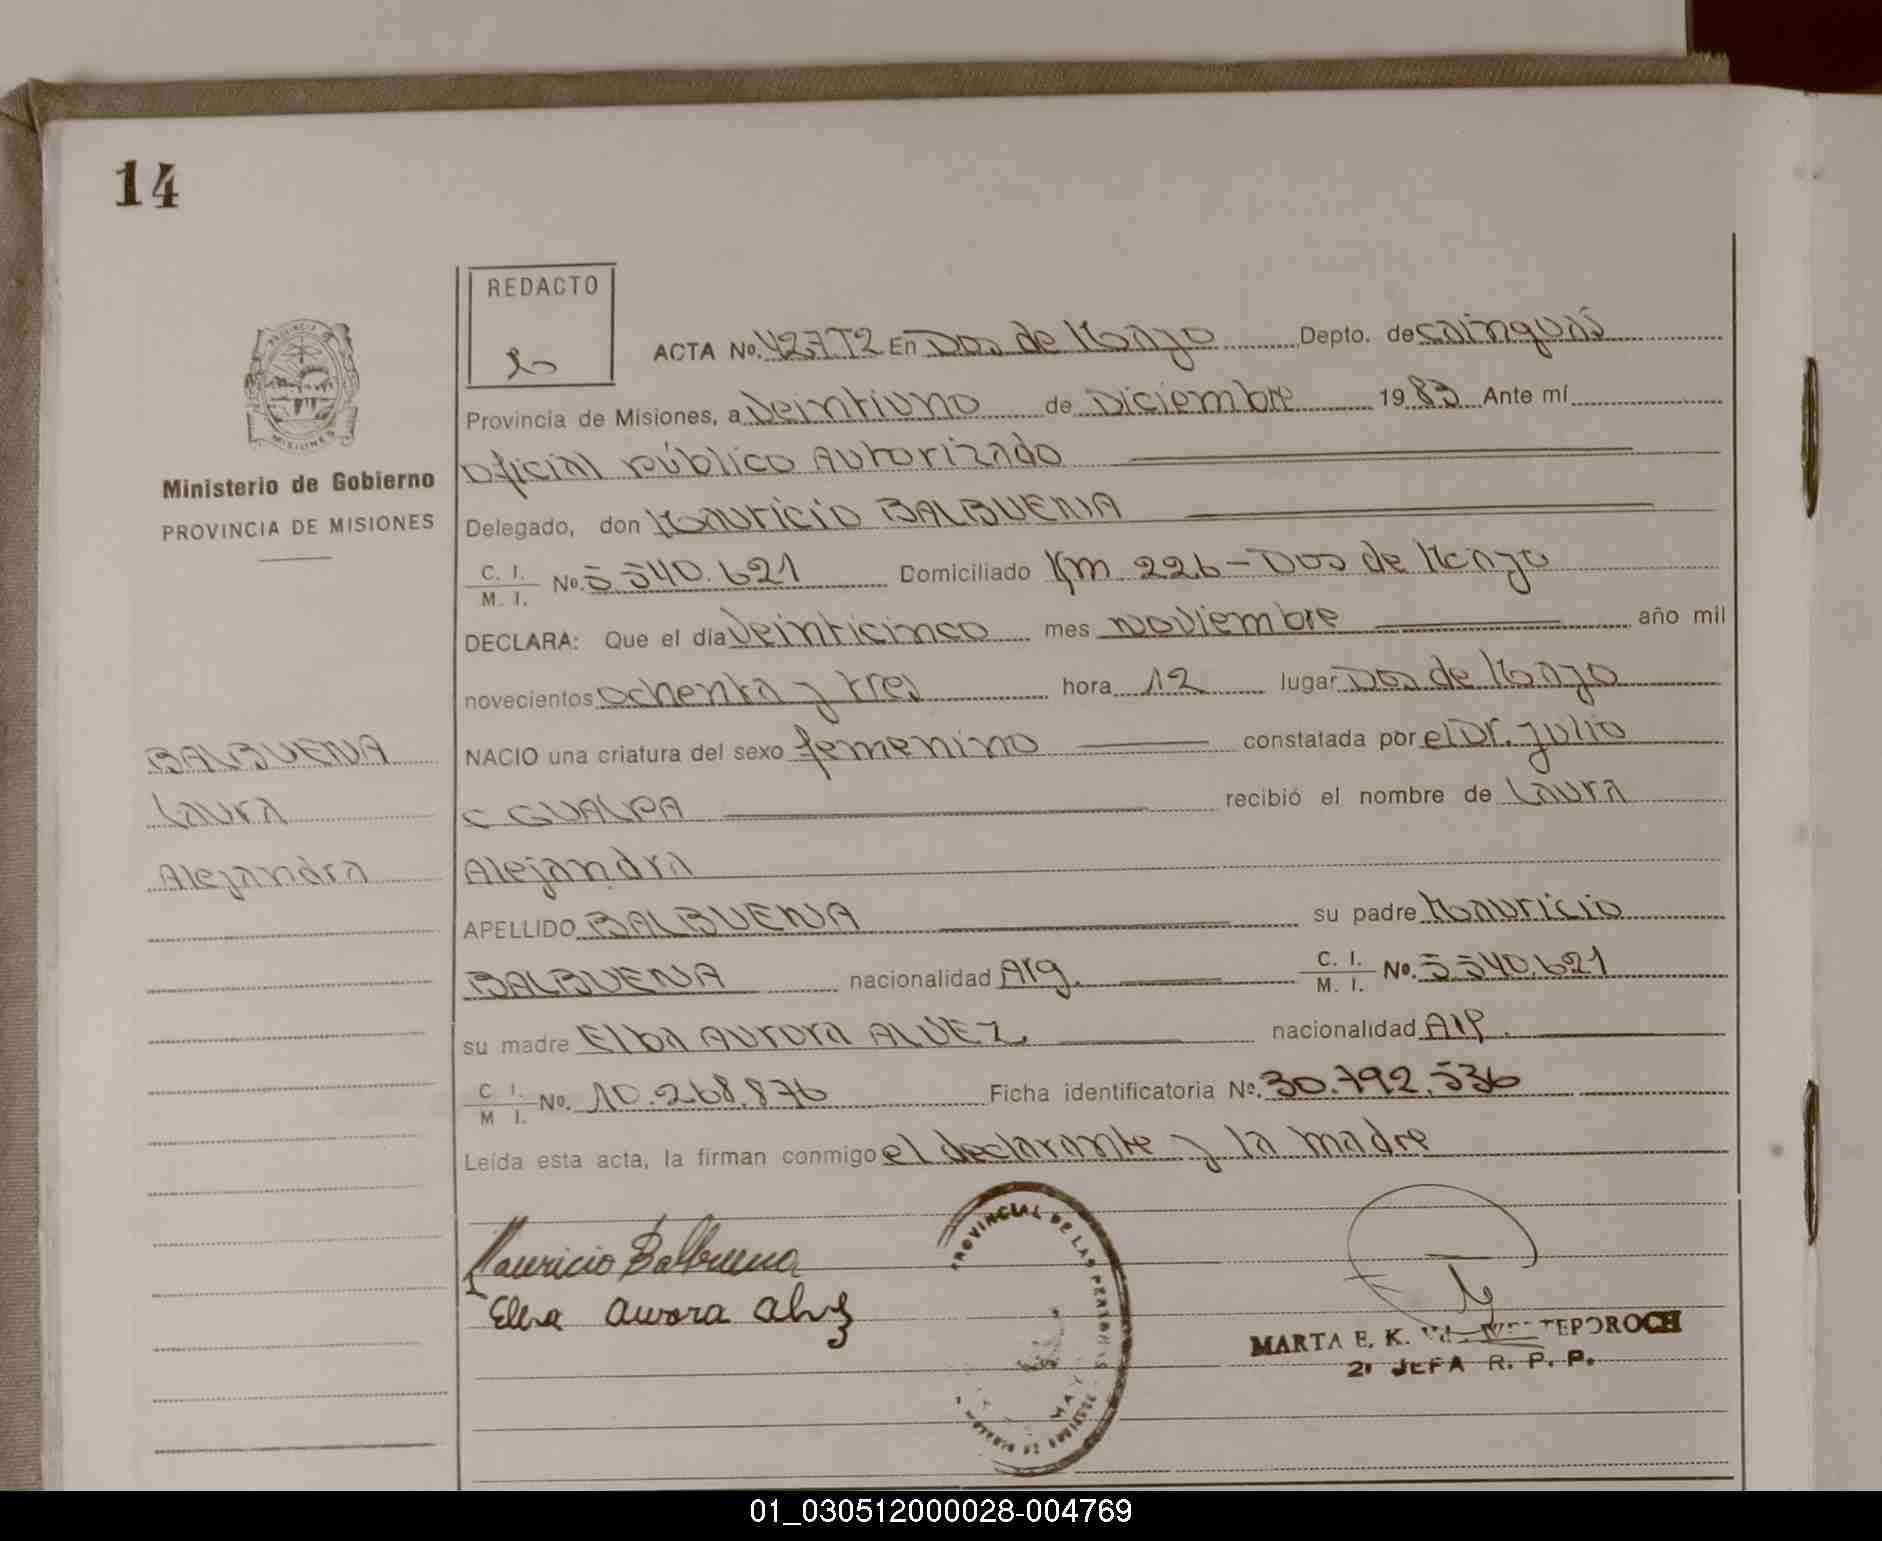 14
REDACTO
ACTA No. 427T2 En Dos de Mayo Depto. de Cainguás
Provincia de Misiones, a Veintiuno de Diciembre 1983 Ante mí
Oficial Público Autorizado
Ministerio de Gobierno
PROVINCIA DE MISIONES
Delegado, don Mauricio BALBUENA
C. I.
M. I. No. 5.540.621 Domiciliado Km 226 - Dos de Mayo
DECLARA: Que el día Veinticinco mes noviembre año mil
novecientos ochenta y tres hora 12 lugar Dos de Mayo
NACIO una criatura del sexo femenino constatada por el Dr. Julio
C GUALPA recibió el nombre de Laura
Alejandra
BALBUENA
Laura
Alejandra
APELLIDO BALBUENA su padre Mauricio
BALBUENA nacionalidad Arg. C. I.
M. I. No. 5.540.621
su madre Elba Aurora ALVEZ nacionalidad Arg.
C I.
M I. No. 10.268.876 Ficha identificatoria No. 30.792.536
Leída esta acta, la firman conmigo el declarante y la madre
Mauricio Balbuena
Elba Aurora Alvez
PROVINCIAL DE LAS PERSONAS
MARTA E. K. TEPOROCH
2º JEFA R. P. P.
01_030512000028-004769